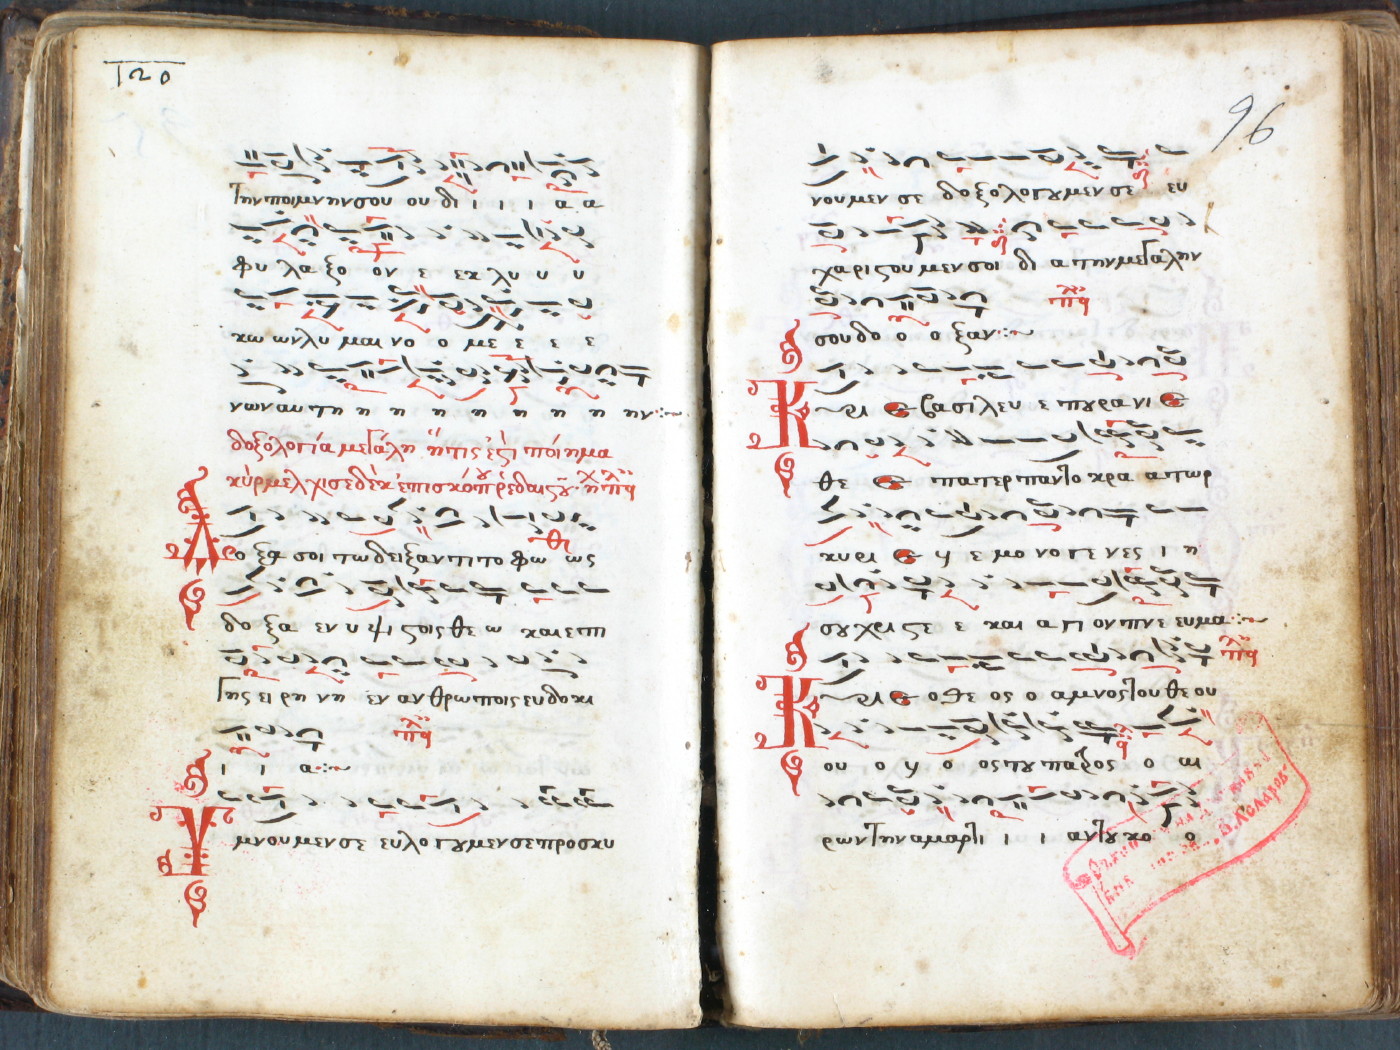 120
την ποιμνην σου ου δι ι ι ι α α
φυ λα ξο ον ε εκ λυ υ υ
κω ων λυ μαι νο ο με ε ε ε
νων αυ τη η η η η η η η ην
δοξολογία μεγάλη ἥτις ἐστὶ ποίημα
κὺρ μελχισεδὲκ ἐπισκόπου ῥεδαιστοῦ
Δο ξα σοι τω δειξαντι το φω ως
δο ξα εν υ ψι στοις θε ω και επι
γης ει ρη νη εν αν θρωποις ευδοκι
ι ι α
Υμνουμεν σε ευλογουμεν σε προσκυ
96
νουμεν σε δοξολογουμεν σε ευ
χαριστουμεν σοι δι α την μεγαλην
σου δο ο ο ξαν
Κυριε βασιλευ ε πουρανιε
θε ε πατερ παντο κρα α τωρ
κυριε υι ε μονογενες ι η
σου χριστε ε και α γι ον πνε ευμα
Κυριε ο θε ος ο αμνος του θεου
ου ο υι ο ος του πατρος ο αι
ρων την αμαρτι ι ι αν του κο ο